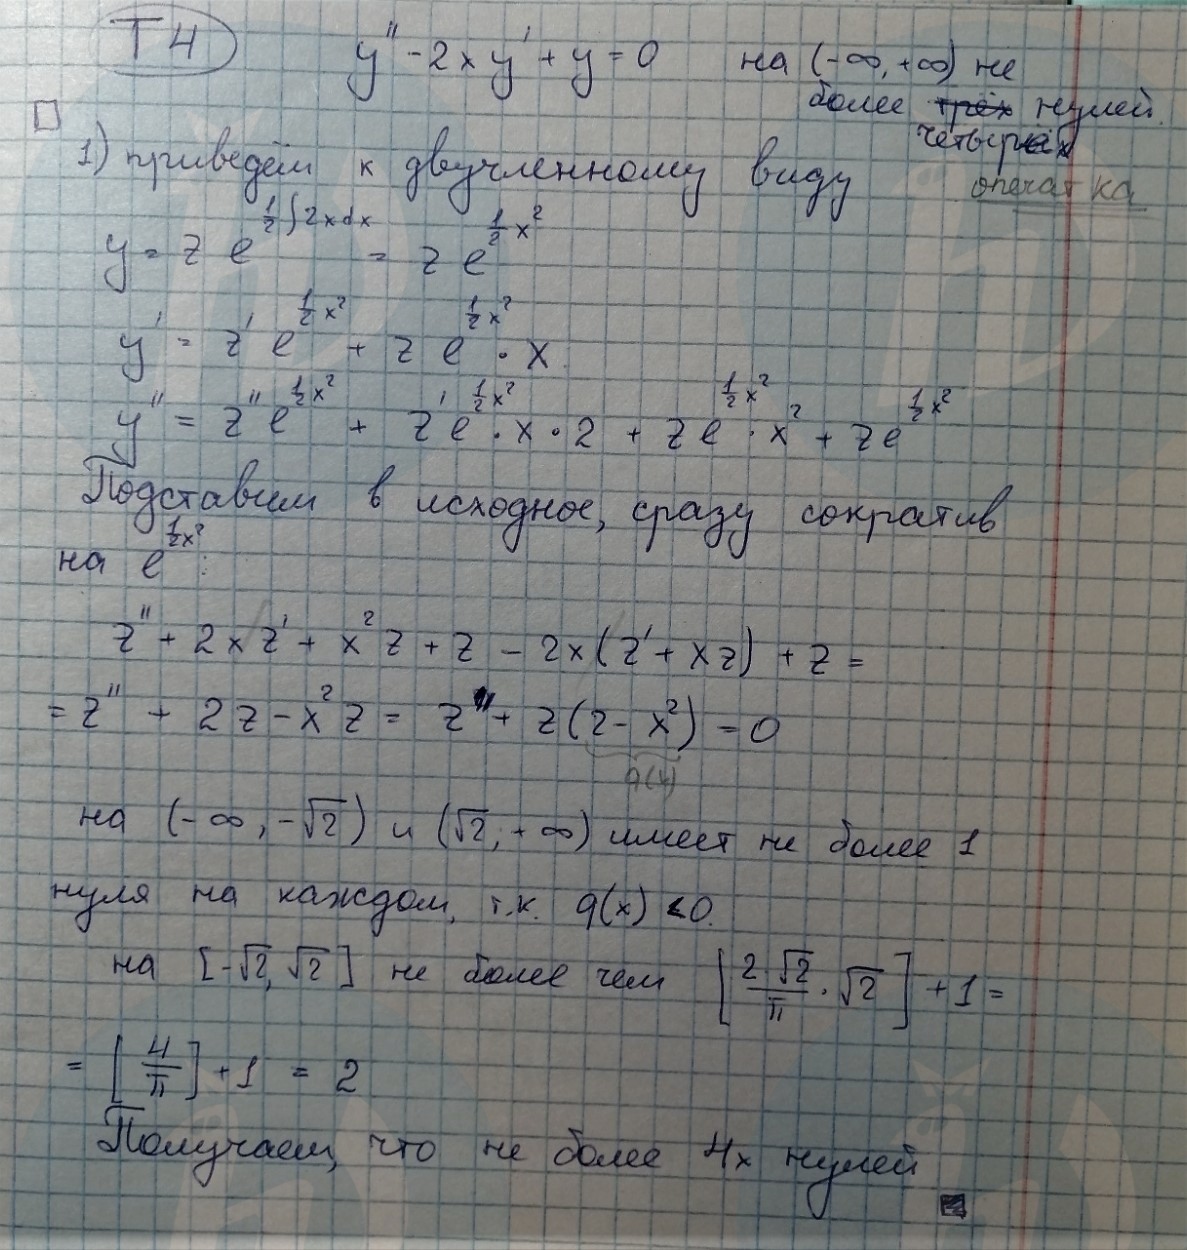 Т4
y'' - 2xy' + y = 0 на (-∞, +∞) не
более трёх нулей.
четырёх
опечатка
□
1) приведём к двучленному виду
y = z e^{½∫2xdx} = z e^{½x²}
y' = z' e^{½x²} + z e^{½x²} · x
y'' = z'' e^{½x²} + z' e^{½x²} · x · 2 + z e^{½x²} · x² + z e^{½x²}
Подставим в исходное, сразу сократив
на e^{½x²}:
z'' + 2xz' + x²z + z - 2x(z' + xz) + z =
= z'' + 2z - x²z = z'' + z(2 - x²) = 0
q(x)
на (-∞, -√2) и (√2, +∞) имеет не более 1
нуля на каждом, т.к. q(x) < 0.
на [-√2, √2] не более чем [2√2/π · √2] + 1 =
= [4/π] + 1 = 2
Получаем, что не более 4х нулей
■